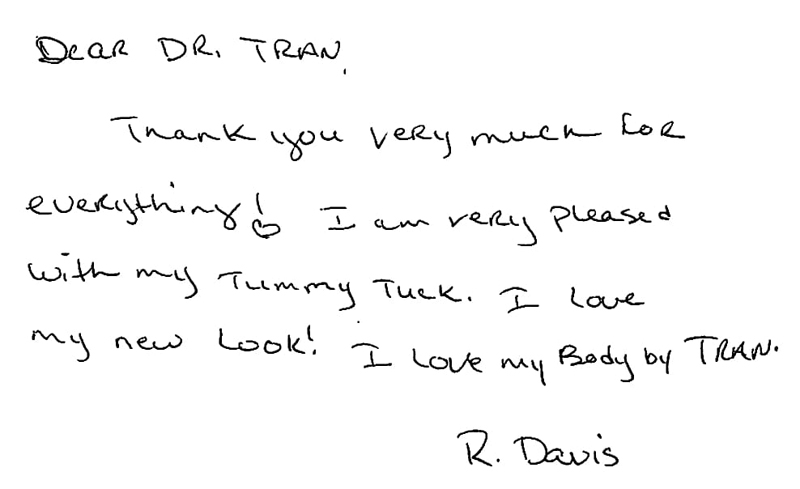 Dear DR. TRAN,
Thank you very much for
everything! I am very pleased
with my Tummy Tuck. I Love
my new Look! I Love my Body by TRAN.
R. Davis